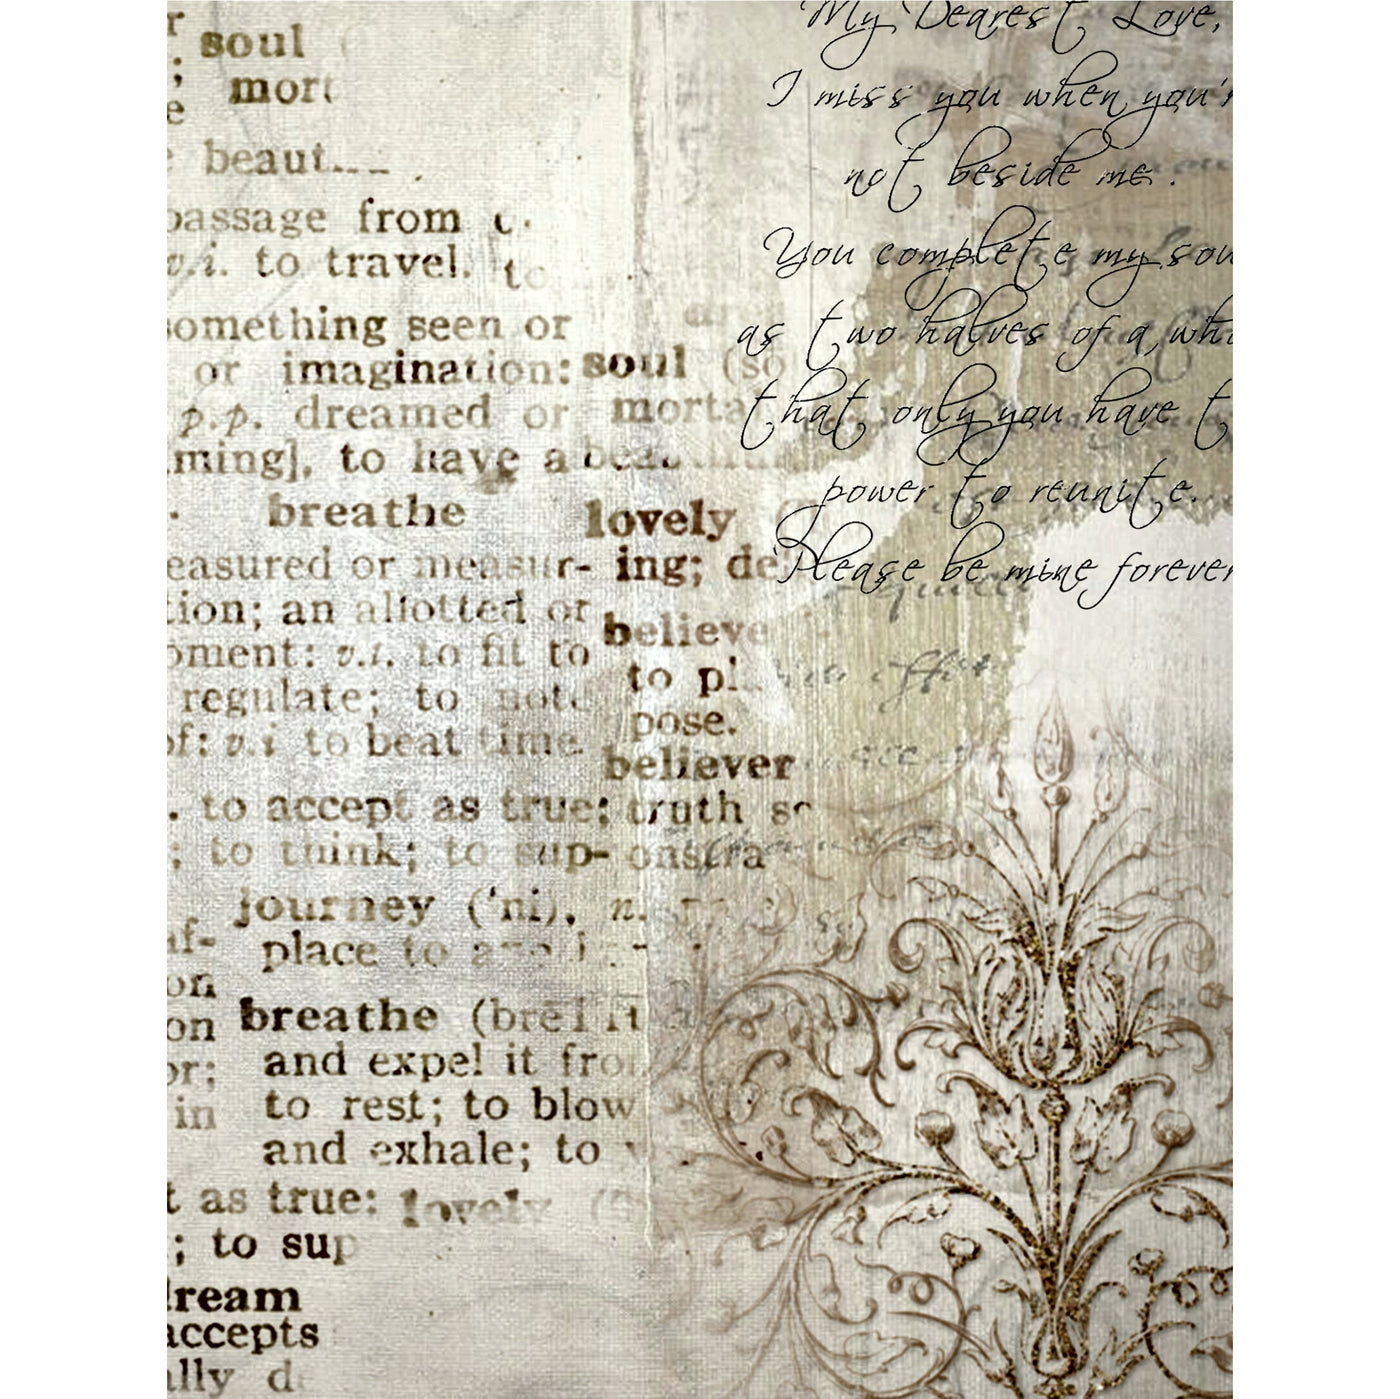 soul
mor
e
beaut
passage from
v.i. to travel. to
something seen or
or imagination:
p.p. dreamed or
ming], to have a
breathe
easured or measur-
tion; an allotted or
oment: v.t. to fit to
regulate; to note
of: v.i to beat time.
. to accept as true;
; to think; to sup-
journey ('ni), n.
place to
on
on
or;
in
breathe
and expel it from
to rest; to blow
and exhale; to
t as true: lovely
; to sup
dream
accepts
ally de
soul (so
morta
lovely
ing; de
believe
to pl
pose.
believer
truth
onstra
My Dearest Love,
I miss you when you'r
not beside me.
You complete my sou
as two halves of a who
that only you have t
power to reunite.
Please be mine forever